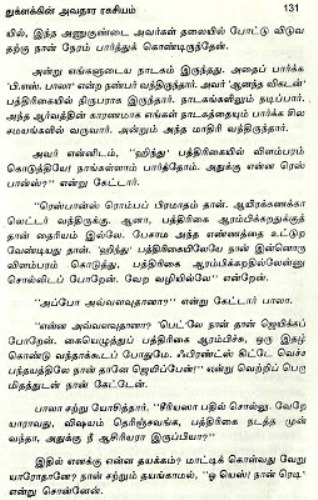 துக்ளக்கின் அவதார ரகசியம் 131
யில், இந்த அணுகுண்டை அவர்கள் தலையில் போட்டு விடுவ
தற்கு நான் நேரம் பார்த்துக் கொண்டிருந்தேன்.
அன்று எங்களுடைய நாடகம் இருந்தது. அதைப் பார்க்க
'பி.எஸ். பாலா' என்ற நண்பர் வந்திருந்தார். அவர் 'ஆனந்த விகடன்'
பத்திரிகையில் நிருபராக இருந்தார். நாடகங்களிலும் நடிப்பார்.
அந்த ஆர்வத்தின் காரணமாக எங்கள் நாடகத்தையும் பார்க்க சில
சமயங்களில் வருவார். அன்றும் அந்த மாதிரி வந்திருந்தார்.
அவர் என்னிடம், "ஹிந்து' பத்திரிகையில் விளம்பரம்
கொடுத்தியே! நாங்கள்ளாம் பார்த்தோம். அதுக்கு என்ன ரெஸ்
பான்ஸ்?" என்று கேட்டார்.
"ரெஸ்பான்ஸ் ரொம்பப் பிரமாதம் தான். ஆயிரக்கணக்கா
லெட்டர் வந்திருக்கு. ஆனா, பத்திரிகை ஆரம்பிக்கறதுக்குத்
தான் தைரியம் இல்லே. பேசாம அந்த எண்ணத்தை உட்டுற
வேண்டியது தான். 'ஹிந்து' பத்திரிகையிலேயே நான் இன்னொரு
விளம்பரம் கொடுத்து, பத்திரிகை ஆரம்பிக்கறதில்லேன்னு
சொல்லிடப் போறேன். வேற வழியில்லே" என்றேன்.
"அப்போ அவ்வளவுதானா?" என்று கேட்டார் பாலா.
"என்ன அவ்வளவுதானா? 'பெட்'லே நான் தான் ஜெயிக்கப்
போறேன். கையெழுத்துப் பத்திரிகை ஆரம்பிச்சு, ஒரு இதழ்
கொண்டு வந்தாக்கூடப் போதுமே. ஃபிரண்ட்ஸ் கிட்டே வெச்ச
பந்தயத்திலே நான் தானே ஜெயிப்பேன்!" என்று வெற்றிப் பெரு
மிதத்துடன் நான் கேட்டேன்.
பாலா சற்று யோசித்தார். "சீரியஸா பதில் சொல்லு. வேறே
யாராவது, விஷயம் தெரிஞ்சவங்க, பத்திரிகை நடத்த முன்
வந்தா, அதுக்கு நீ ஆசிரியரா இருப்பியா?"
இதில் எனக்கு என்ன தயக்கம்? மாட்டிக் கொள்வது வேறு
யாரோதானே? நான் சற்றும் தயங்காமல், "ஓ யெஸ்! நான் ரெடி'
என்று சொன்னேன்.